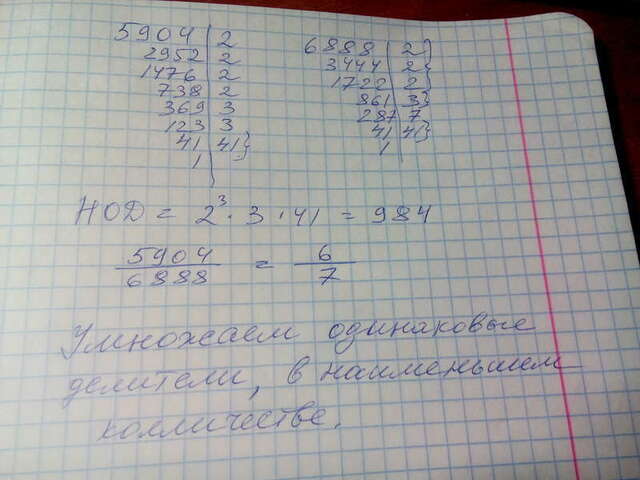 5904 | 2
2952 | 2
1476 | 2
738 | 2
369 | 3
123 | 3
41 | 41}
1 |
6888 | 2}
3444 | 2}
1722 | 2}
861 | 3}
287 | 7
41 | 41}
1 |
НОД = 2³ · 3 · 41 = 984
5904/6888 = 6/7
Умножаем одинаковые
делители, в наименьшем
колличестве.